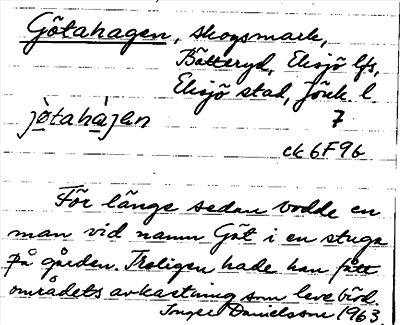 Götahagen, skogsmark,
Bätteryd, Eksjö lfs,
Eksjö stad, Jönk. l.
jòtahàjen 7
ek 6F9b
För länge sedan bodde en
man vid namn Göt i en stuga
på gården. Troligen hade han fått
områdets avkastning som levebröd.
Inger Danielsson 1963.